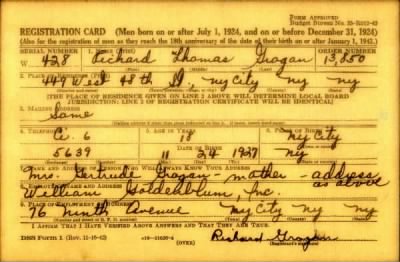 FORM APPROVED
Budget Bureau No. 33-R012-42
REGISTRATION CARD (Men born on or after July 1, 1924, and on or before December 31, 1924)
(Also for the registration of men as they reach the 18th anniversary of the date of their birth on or after January 1, 1943.)
SERIAL NUMBER 1. NAME (Print) ORDER NUMBER
W 428 Richard Thomas Grogan 13,850
2. PLACE OF RESIDENCE (Print)
449 West 48th St ny City ny ny
[THE PLACE OF RESIDENCE GIVEN ON LINE 2 ABOVE WILL DETERMINE LOCAL BOARD
JURISDICTION; LINE 2 OF REGISTRATION CERTIFICATE WILL BE IDENTICAL]
3. MAILING ADDRESS
Same
4. TELEPHONE 5. AGE IN YEARS 6. PLACE OF BIRTH
Ci. 6 18 ny City
5639 11 24 1927 ny
7. NAME AND ADDRESS OF PERSON WHO WILL ALWAYS KNOW YOUR ADDRESS
Mrs. Gertrude Grogan - mother - address
as above
8. EMPLOYER'S NAME AND ADDRESS
William Goldenblum, Inc.
9. PLACE OF EMPLOYMENT OR BUSINESS
76 Ninth Avenue ny City ny ny
I AFFIRM THAT I HAVE VERIFIED ABOVE ANSWERS AND THAT THEY ARE TRUE.
DSS Form 1 (Rev. 11-16-42) (OVER) Richard Grogan